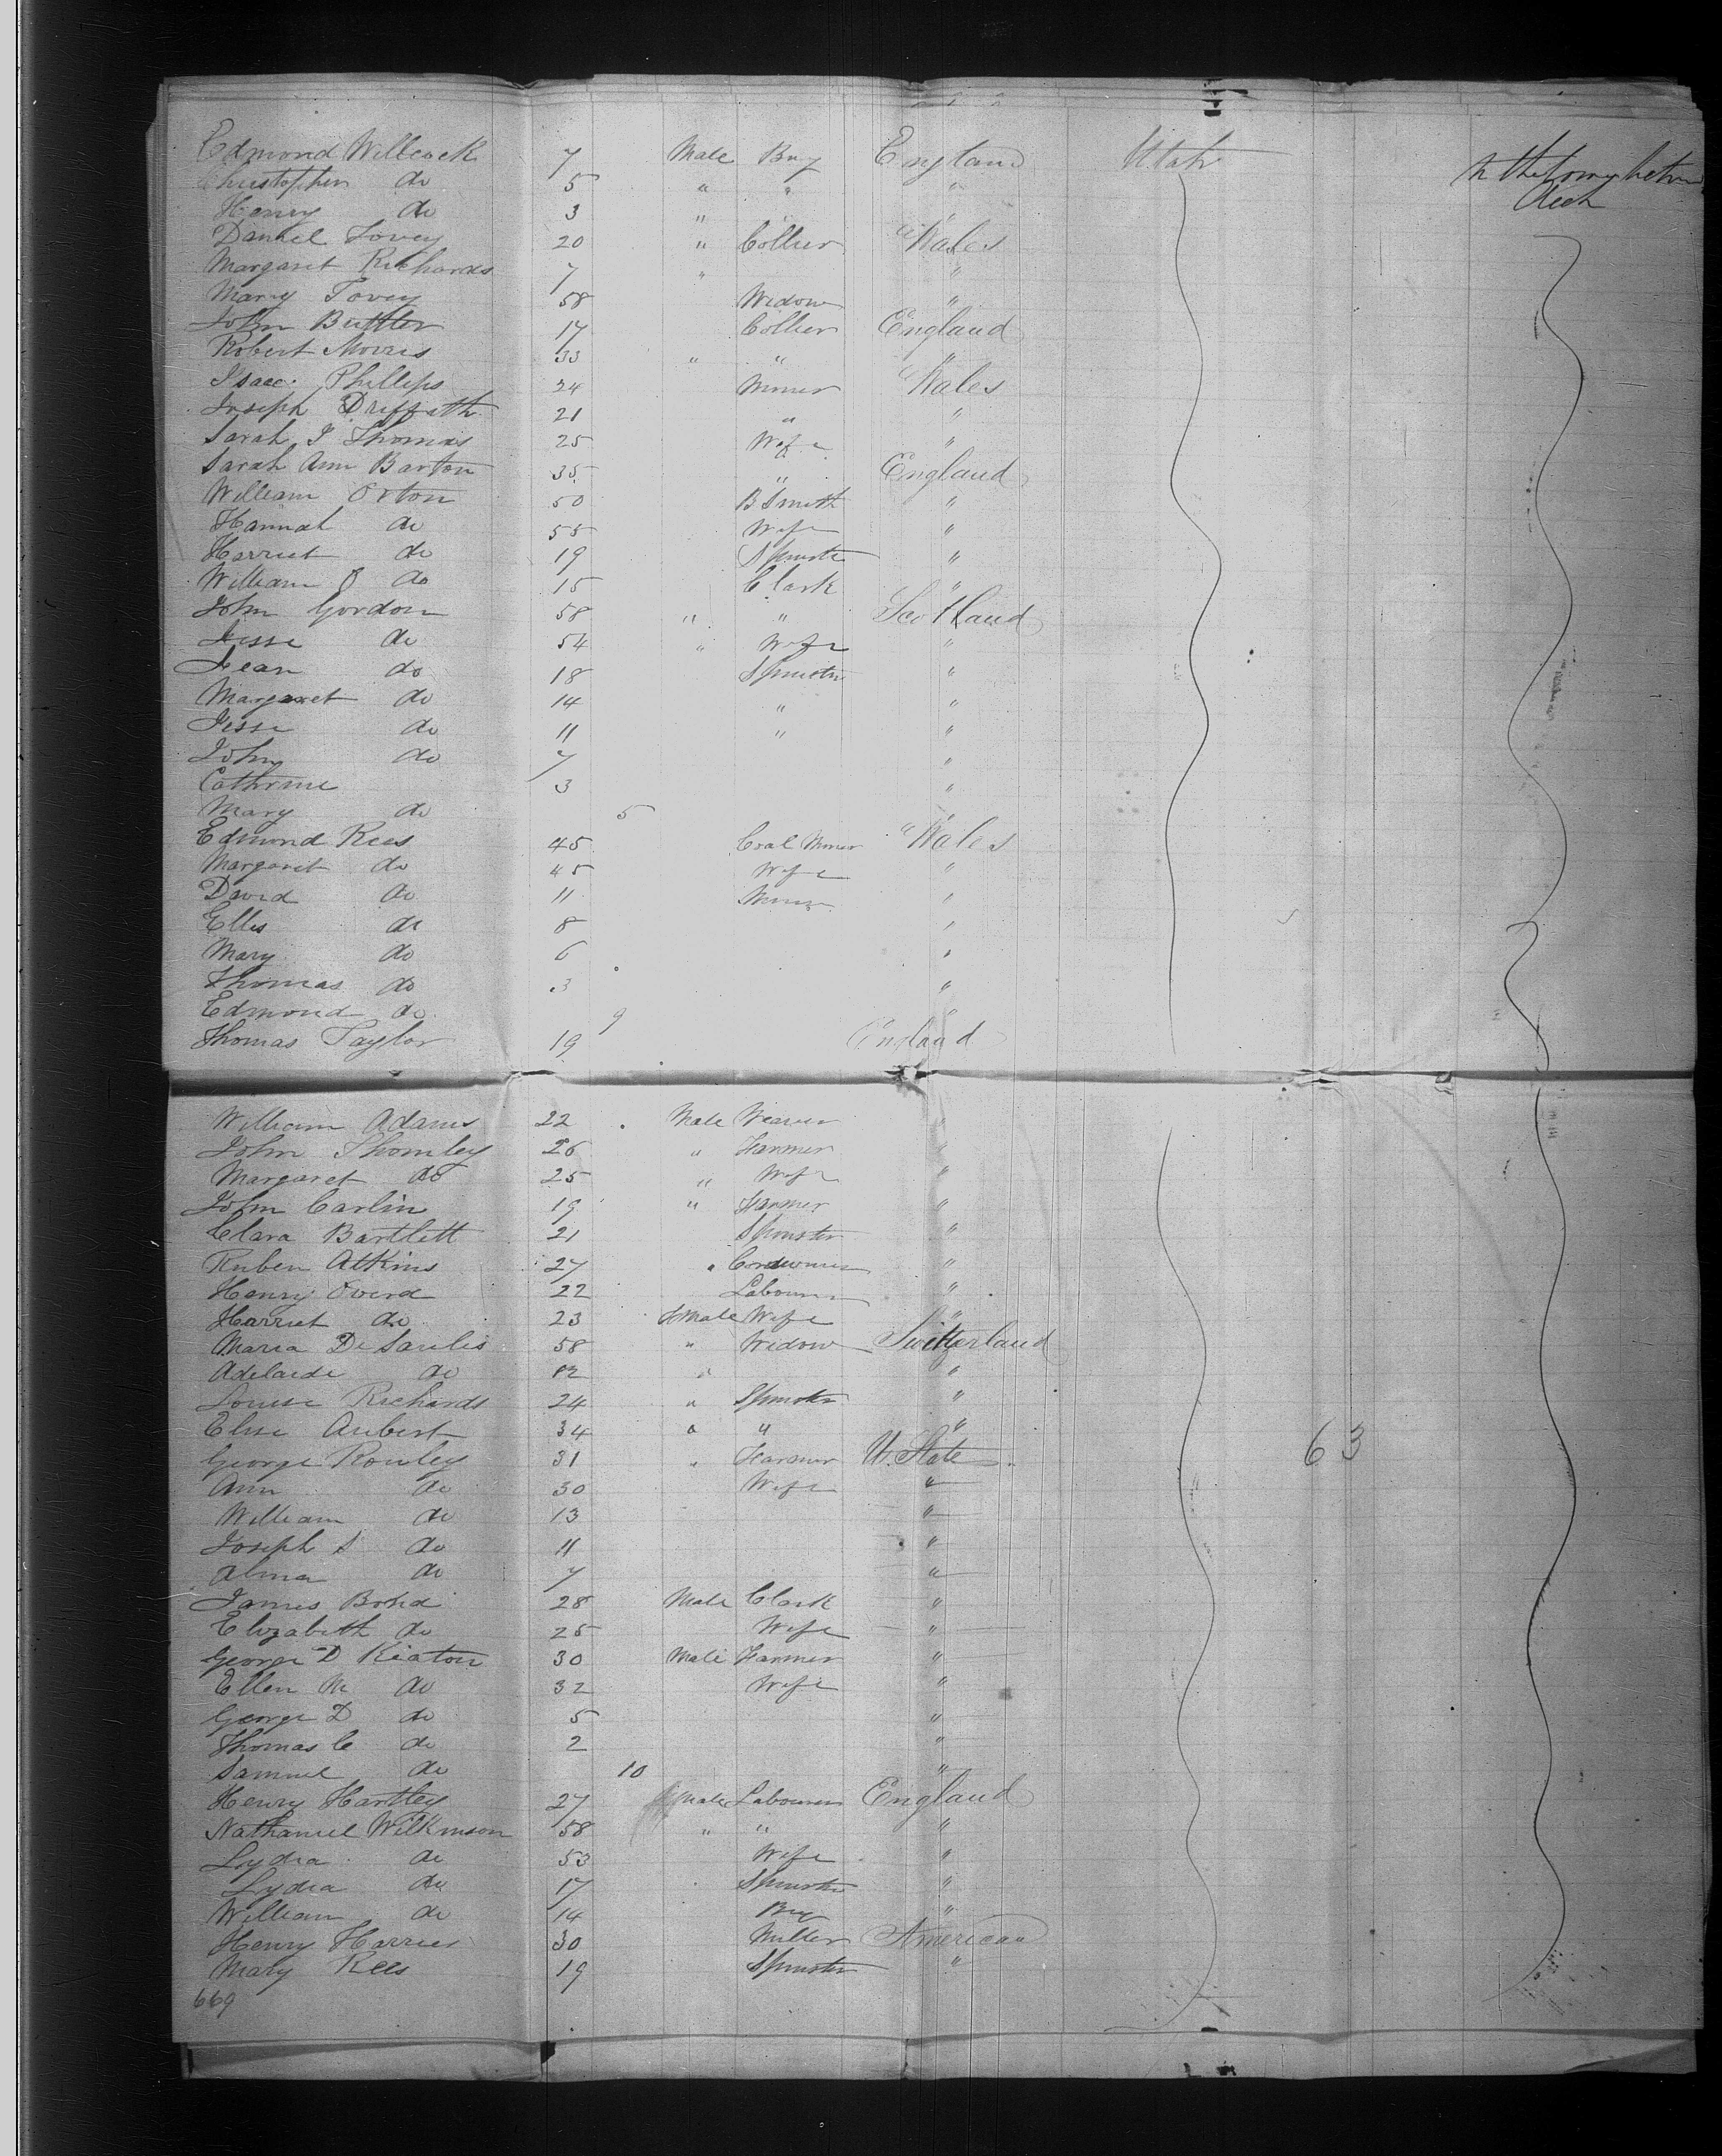 Edmond Willcock 7 Male Boy England Utah
Christopher do 5 " " "
Henry do 3 " " " Deck
Daniel Tovey 20 " Collier Wales
Margaret Richards 7 " "
Mary Tovey 58 Widow "
John Buttler 17 Collier England
Robert Morris 33 " " "
Isaac Phillips 24 Miner Wales
Joseph Driffith 21 " "
Sarah J Thomas 25 Wife "
Sarah Ann Barton 35 " England
William Orton 50 B Smith "
Hannah do 55 Wife "
Harriet do 19 Spinster "
William J do 15 Clark "
John Gordon 58 " " Scotland
Jesse do 54 " Wife "
Jean do 18 Spinster "
Margaret do 14 " "
Jesse do 11 " "
John do 7 "
Cathrine 3 "
Mary do 5 "
Edmond Rees 45 Coal Miner Wales
Margaret do 45 Wife "
David do 11 Miner "
Ellis do 8 "
Mary do 6 "
Thomas do 3 "
Edmond do 9 "
Thomas Taylor 19 England
William Adams 22 Male Weaver "
John Thomley 26 " Farmer "
Margaret do 25 " Wife "
John Carlin 19 " Farmer "
Clara Bartlett 21 Spinster "
Ruben Atkins 27 " Cordwiner "
Henry Overd 22 Labourer "
Harriet do 23 Female Wife "
Maria De Saulis 58 " Widow Switzerland
Adelaide do 12 " "
Louise Richards 24 " Spinster "
Elise Aubert 34 " " "
George Rowley 31 " Farmer U. State 63
Ann do 30 Wife "
William do 13 "
Joseph S do 11 "
Alma do 7 "
James Bond 28 Male Clark "
Elizabeth do 25 Wife "
George D Keaton 30 Male Farmer "
Ellen M do 32 Wife "
George D do 5 "
Thomas C do 2 "
Samuel do 10 "
Henry Hartley 27 Male Labourer England
Nathaniel Wilkinson 58 " " "
Lydia do 53 Wife "
Lydia do 17 Spinster "
William do 14 Boy "
Henry Harries 30 Miller American
Mary Rees 19 Spinster "
669